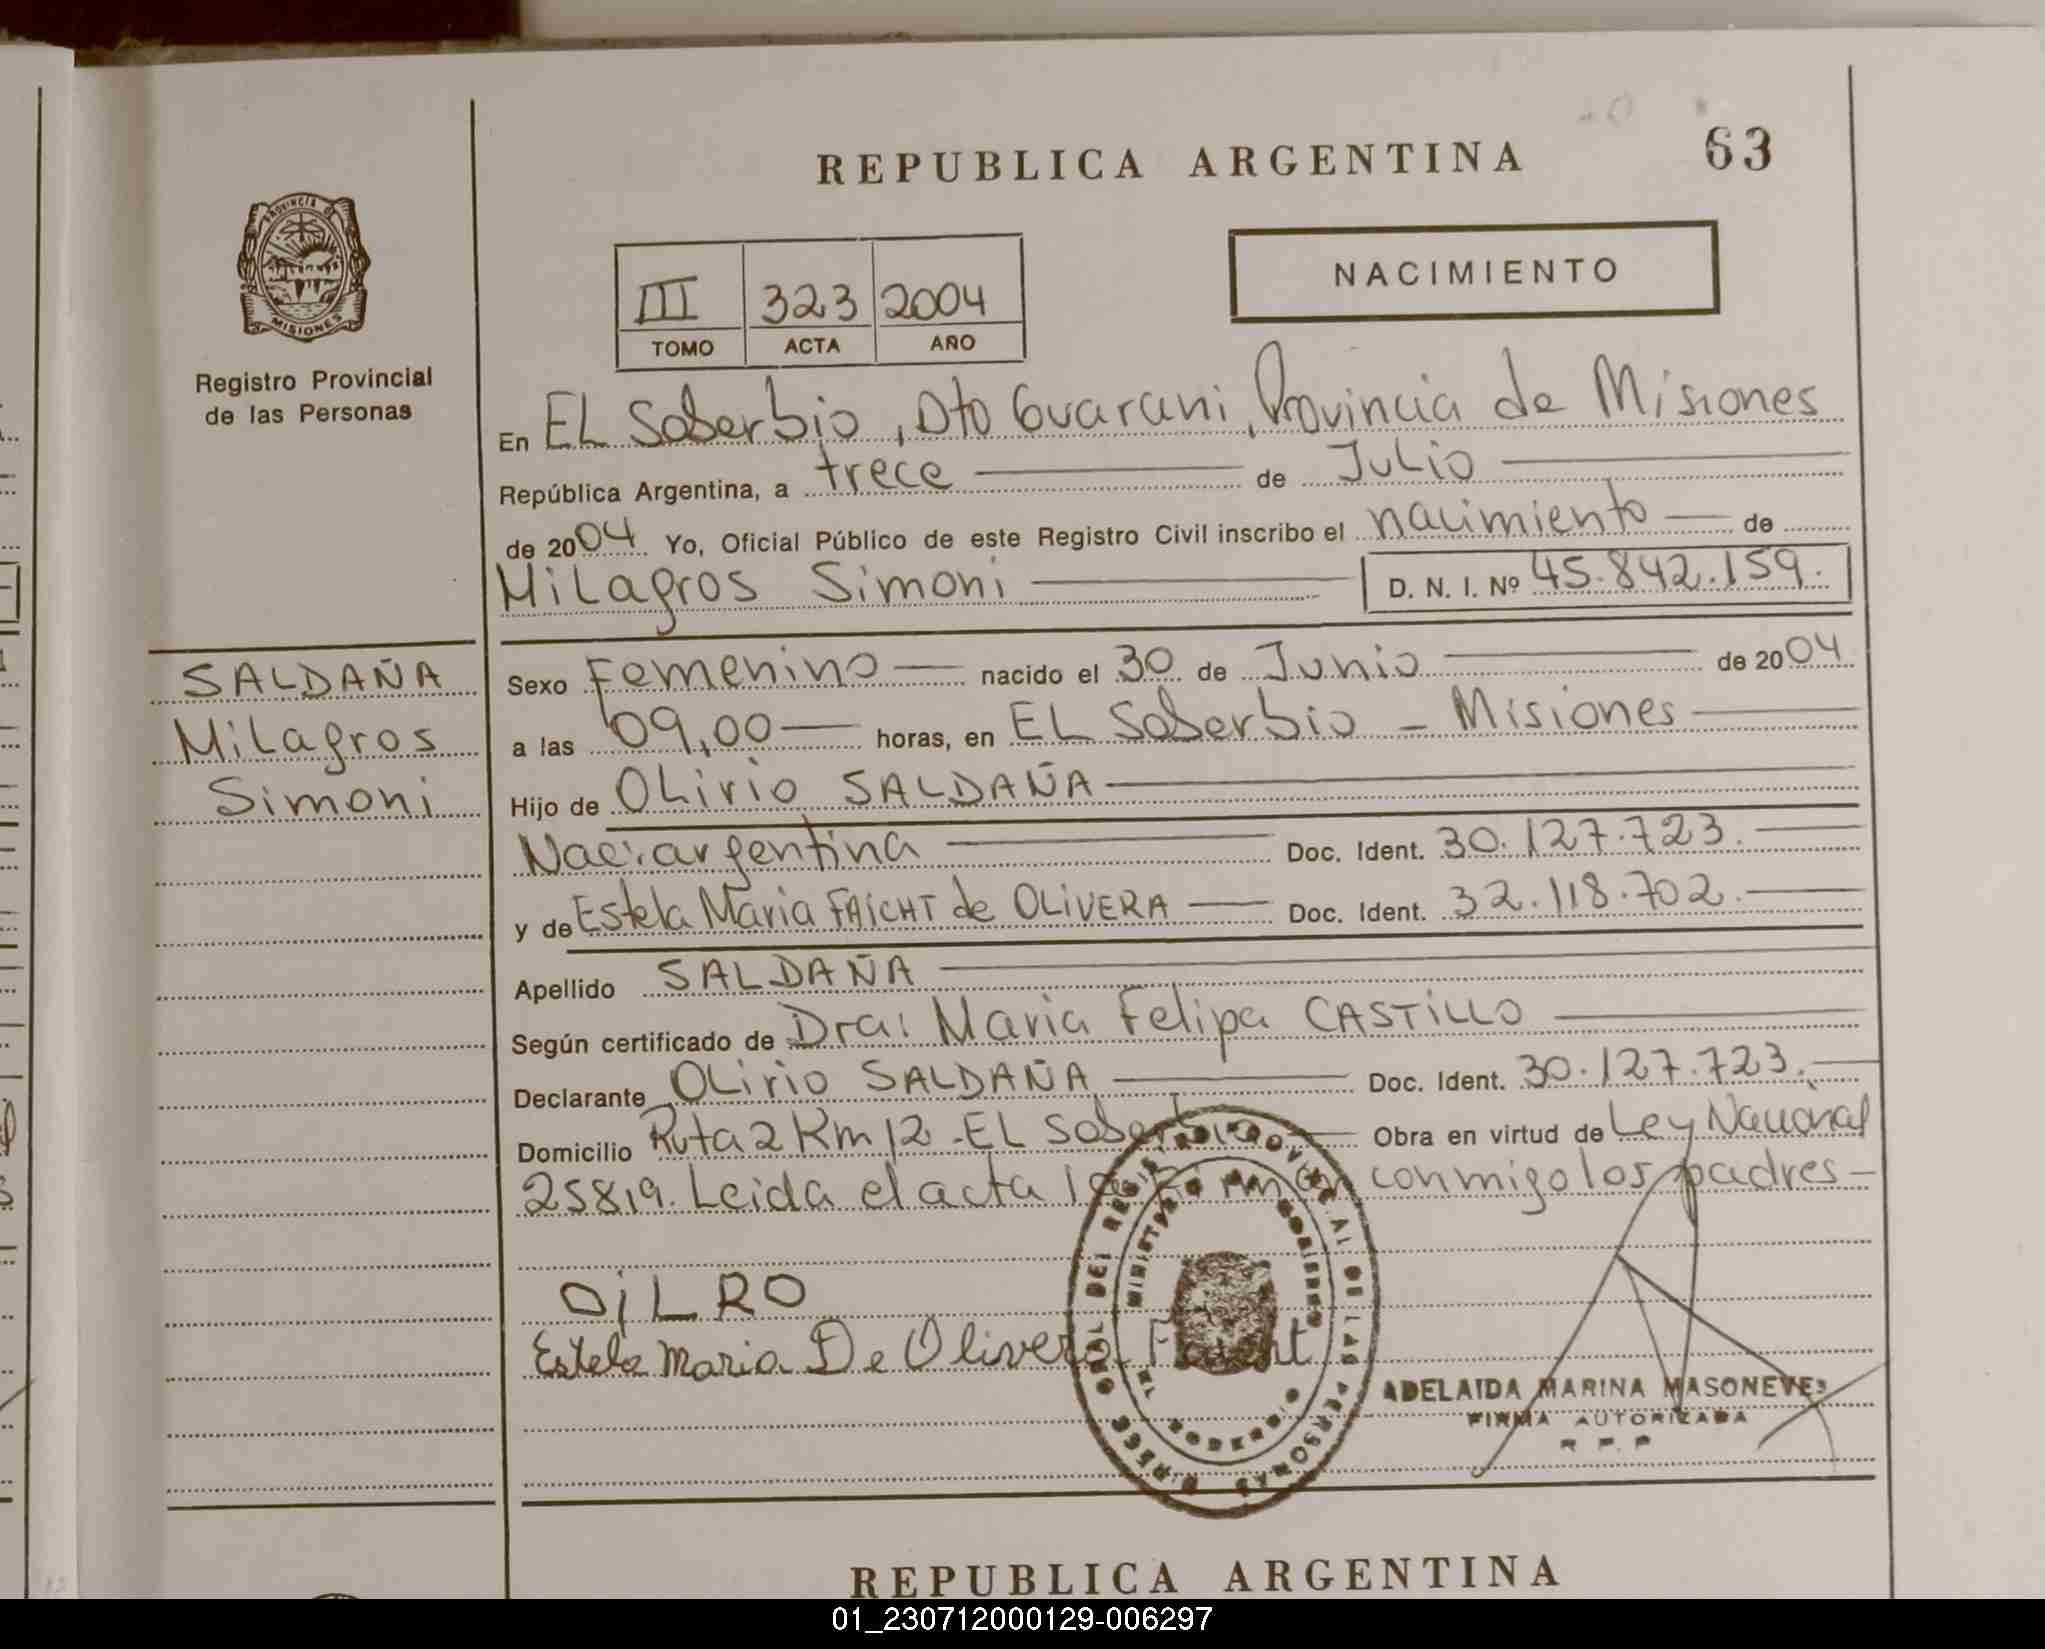 REPUBLICA ARGENTINA
63
PROVINCIA DE
MISIONES
Registro Provincial
de las Personas
III 323 2004
TOMO ACTA AÑO
NACIMIENTO
En EL Soberbio, Dto Guarani, Provincia de Misiones
República Argentina, a trece de Julio
de 2004 Yo, Oficial Público de este Registro Civil inscribo el nacimiento de
Milagros Simoni D. N. I. Nº 45.842.159.
SALDAÑA
Milagros
Simoni
Sexo Femenino nacido el 30 de Junio de 2004
a las 09,00 horas, en EL Soberbio - Misiones
Hijo de OLirio SALDAÑA
Nac: argentina Doc. Ident. 30.127.723.
y de Estela Maria FAICHT de OLIVERA Doc. Ident. 32.118.702.
Apellido SALDAÑA
Según certificado de Dra: Maria Felipa CASTILLO
Declarante OLirio SALDAÑA Doc. Ident. 30.127.723.
Domicilio Ruta 2 Km 12 - EL Soberbio Obra en virtud de Ley Nacional
25819. Leida el acta la firman conmigo los padres
OiLRO
Estela maria De Olivera
ADELAIDA MARINA MASONEVES
FIRMA AUTORIZADA
R P P
REPUBLICA ARGENTINA
01_230712000129-006297